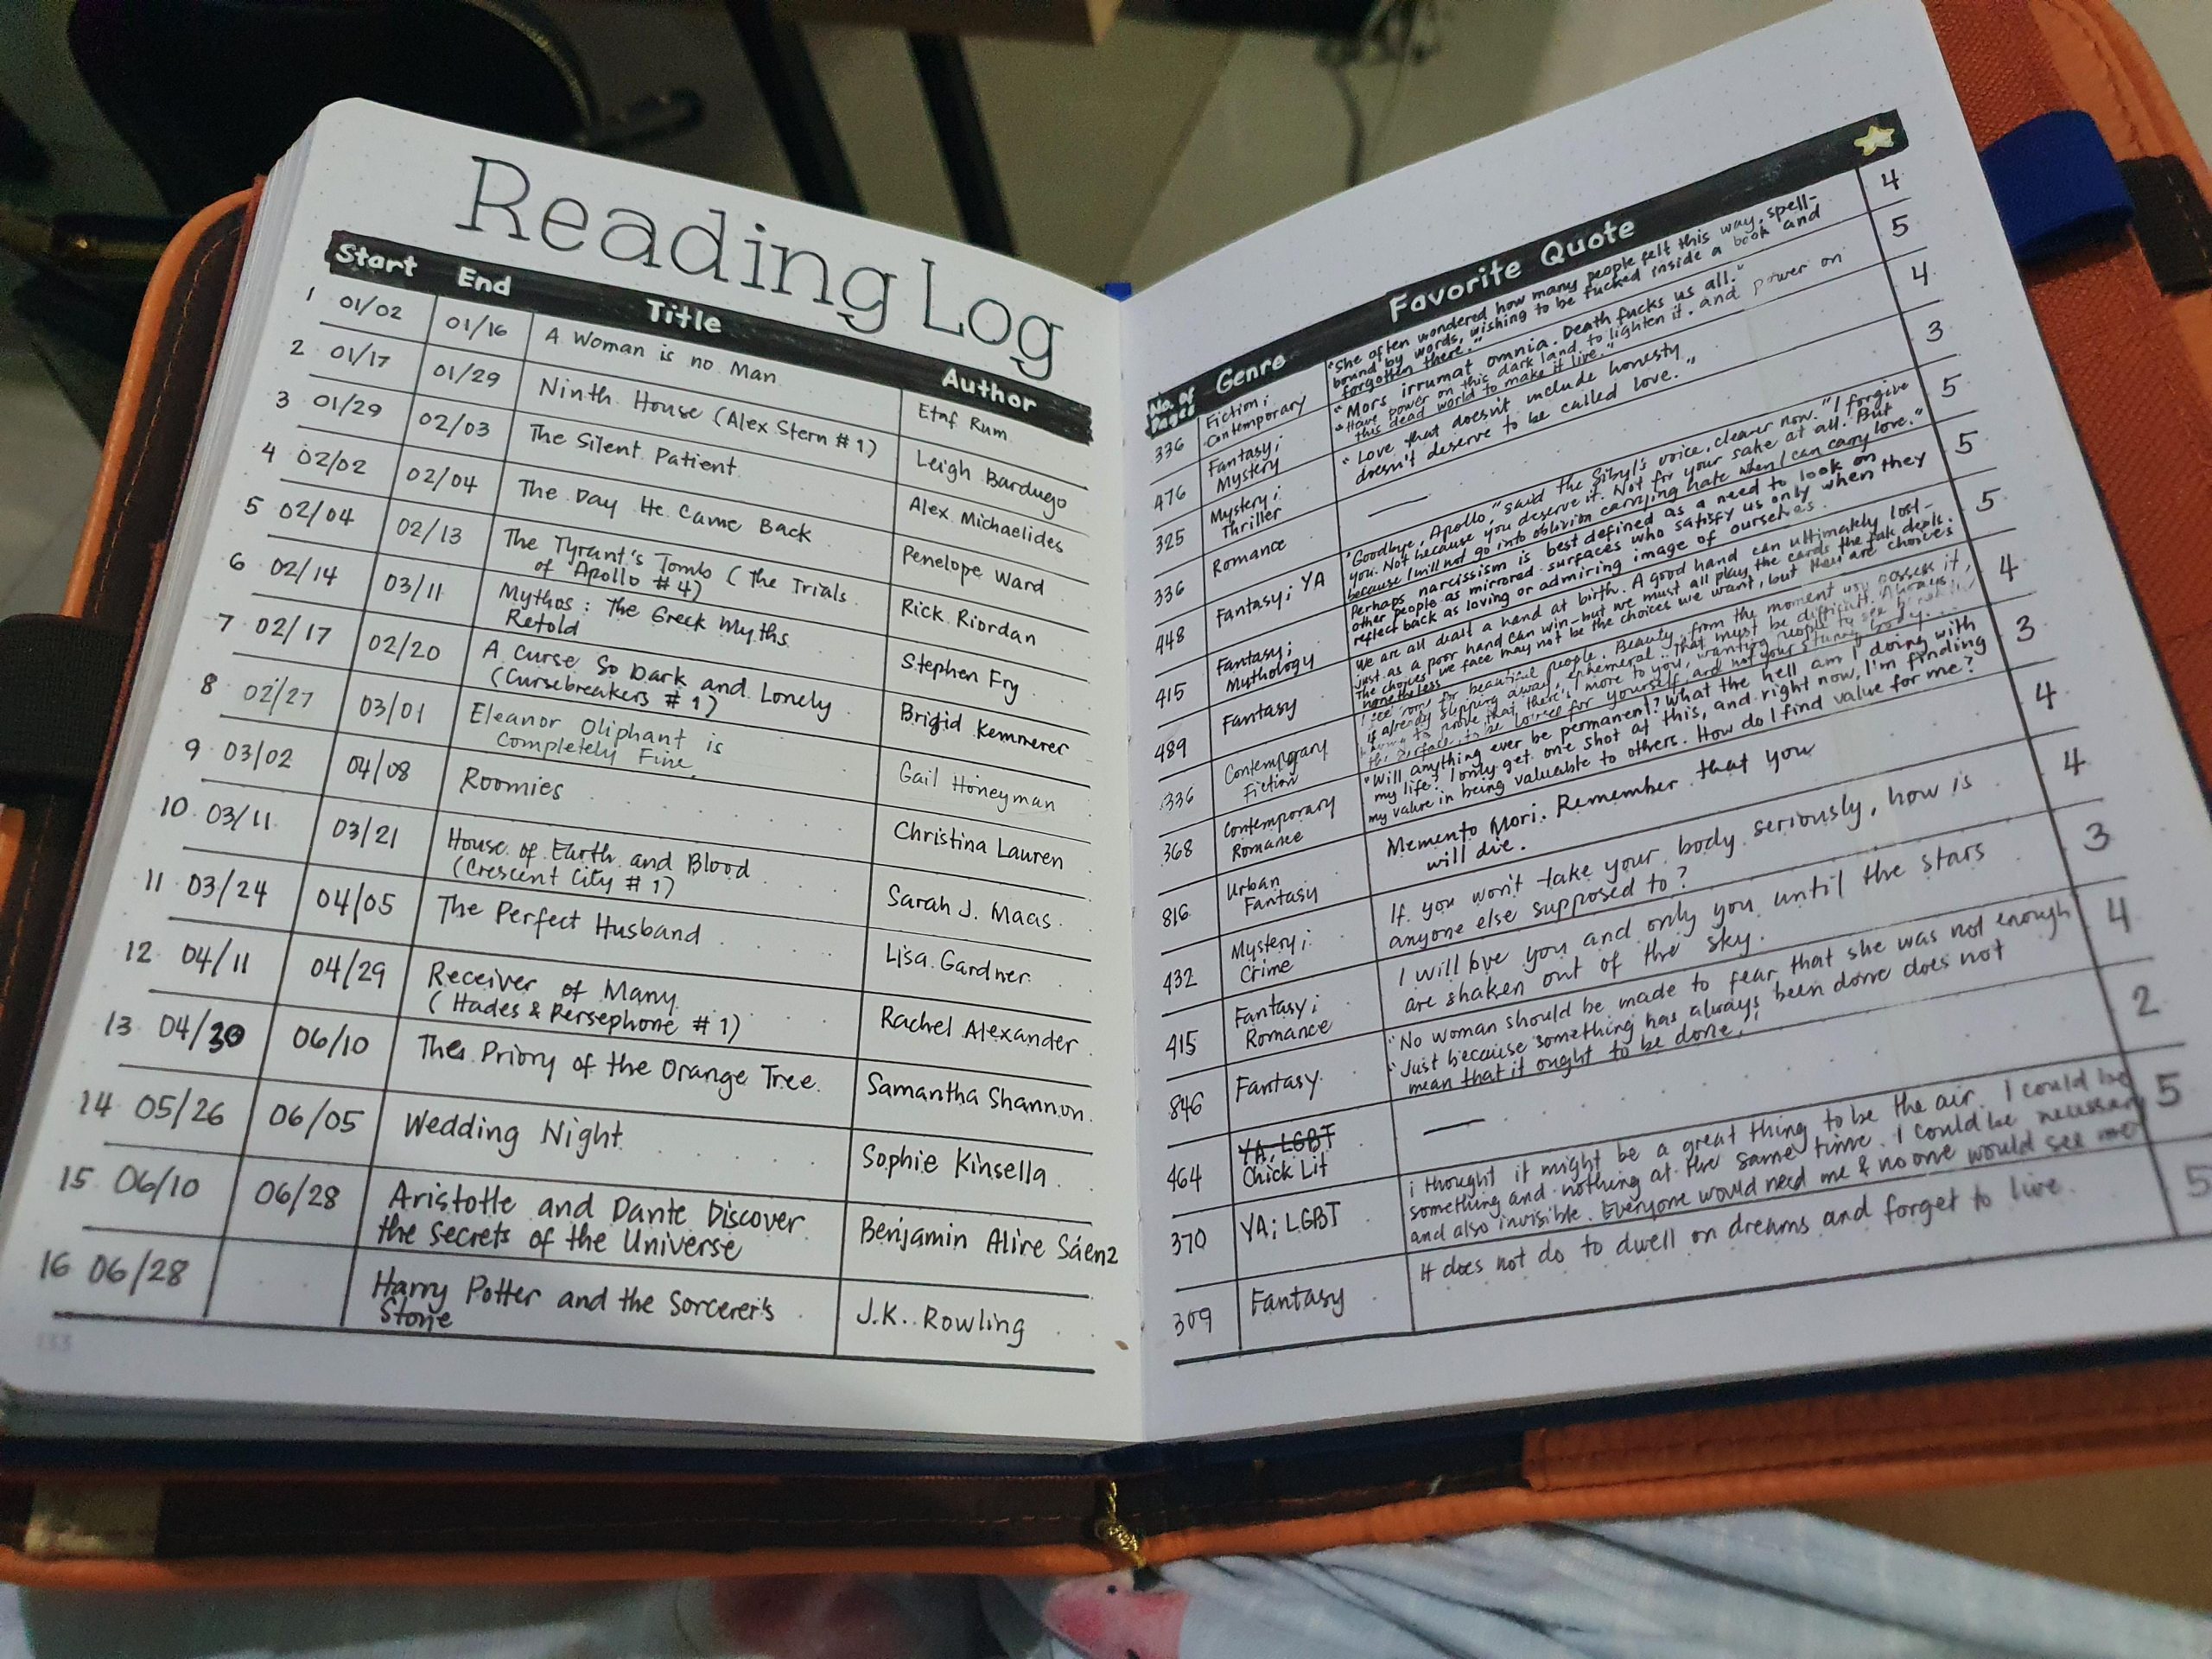 Reading Log
Start End Title Author
1 01/02 01/16 A Woman is no Man Etaf Rum
2 01/17 01/29 Ninth House (Alex Stern #1) Leigh Bardugo
3 01/29 02/03 The Silent Patient Alex Michaelides
4 02/02 02/04 The Day He Came Back Penelope Ward
5 02/04 02/13 The Tyrant's Tomb (The Trials
of Apollo #4) Rick Riordan
6 02/14 03/11 Mythos: The Greek Myths
Retold Stephen Fry
7 02/17 02/20 A Curse So Dark and Lonely
(Cursebreakers #1) Brigid Kemmerer
8 02/27 03/01 Eleanor Oliphant is
Completely Fine Gail Honeyman
9 03/02 04/08 Roomies Christina Lauren
10 03/11 03/21 House of Earth and Blood
(Crescent City #1) Sarah J. Maas
11 03/24 04/05 The Perfect Husband Lisa Gardner
12 04/11 04/29 Receiver of Many
(Hades & Persephone #1) Rachel Alexander
13 04/30 06/10 The Priory of the Orange Tree Samantha Shannon
14 05/26 06/05 Wedding Night Sophie Kinsella
15 06/10 06/28 Aristotle and Dante Discover
the Secrets of the Universe Benjamin Alire Sáenz
16 06/28 Harry Potter and the Sorcerer's
Stone J.K. Rowling
133
No. of
Pages Genre Favorite Quote
336 Fiction;
Contemporary
"She often wondered how many people felt this way, spell-
bound by words, wishing to be tucked inside a book and
forgotten there." 4
476 Fantasy;
Mystery
"Mors irrumat omnia. Death fucks us all."
"Have power on this dark land, to lighten it, and power on
this dead world to make it live." 5
325 Mystery;
Thriller
"Love that doesn't include honesty
doesn't deserve to be called love." 4
336 Romance — 3
448 Fantasy; YA
"Goodbye, Apollo," said the Sibyl's voice, clearer now. "I forgive
you. Not because you deserve it. Not for your sake at all. But
because I will not go into oblivion carrying hate when I can carry love." 5
415 Fantasy;
Mythology
Perhaps narcissism is best defined as a need to look on
other people as mirrored surfaces who satisfy us only when they
reflect back as loving or admiring image of ourselves. 5
489 Fantasy
We are all dealt a hand at birth. A good hand can ultimately lost-
just as a poor hand can win-but we must all play the cards the fate deals.
The choices we face may not be the choices we want, but they are choices
nonetheless. 5
336 Contemporary
Fiction
I feel sorry for beautiful people. Beauty, from the moment you possess it,
is already slipping away, ephemeral. That must be difficult. Always
having to prove that there's more to you, wanting people to see
the surface, to be loved for yourself, and not your stunning body... 4
368 Contemporary
Romance
"Will anything ever be permanent? What the hell am I doing with
my life? I only get one shot at this, and right now, I'm finding
my value in being valuable to others. How do I find value for me? 3
816 Urban
Fantasy
Memento Mori. Remember that you
will die. 4
432 Mystery;
Crime
If you won't take your body seriously, how is
anyone else supposed to? 4
415 Fantasy;
Romance
I will love you and only you until the stars
are shaken out of the sky. 3
846 Fantasy
"No woman should be made to fear that she was not enough
"Just because something has always been done does not
mean that it ought to be done." 4
464 YA; LGBT
Chick Lit — 2
370 YA; LGBT
i thought it might be a great thing to be the air. I could be
something and nothing at the same time. I could be necessary
and also invisible. Everyone would need me & no one would see me 5
309 Fantasy
It does not do to dwell on dreams and forget to live. 5